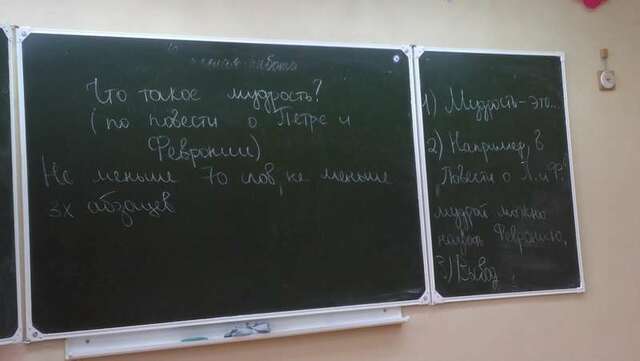 работа
Что такое мудрость?
(по повести о Петре и
Февронии)
Не меньше 70 слов, не меньше
3х абзацев
1) Мудрость - это...
2) Например, в
"Повести о П. и Ф."
мудрой можно
назвать Февронию,
3) Вывод